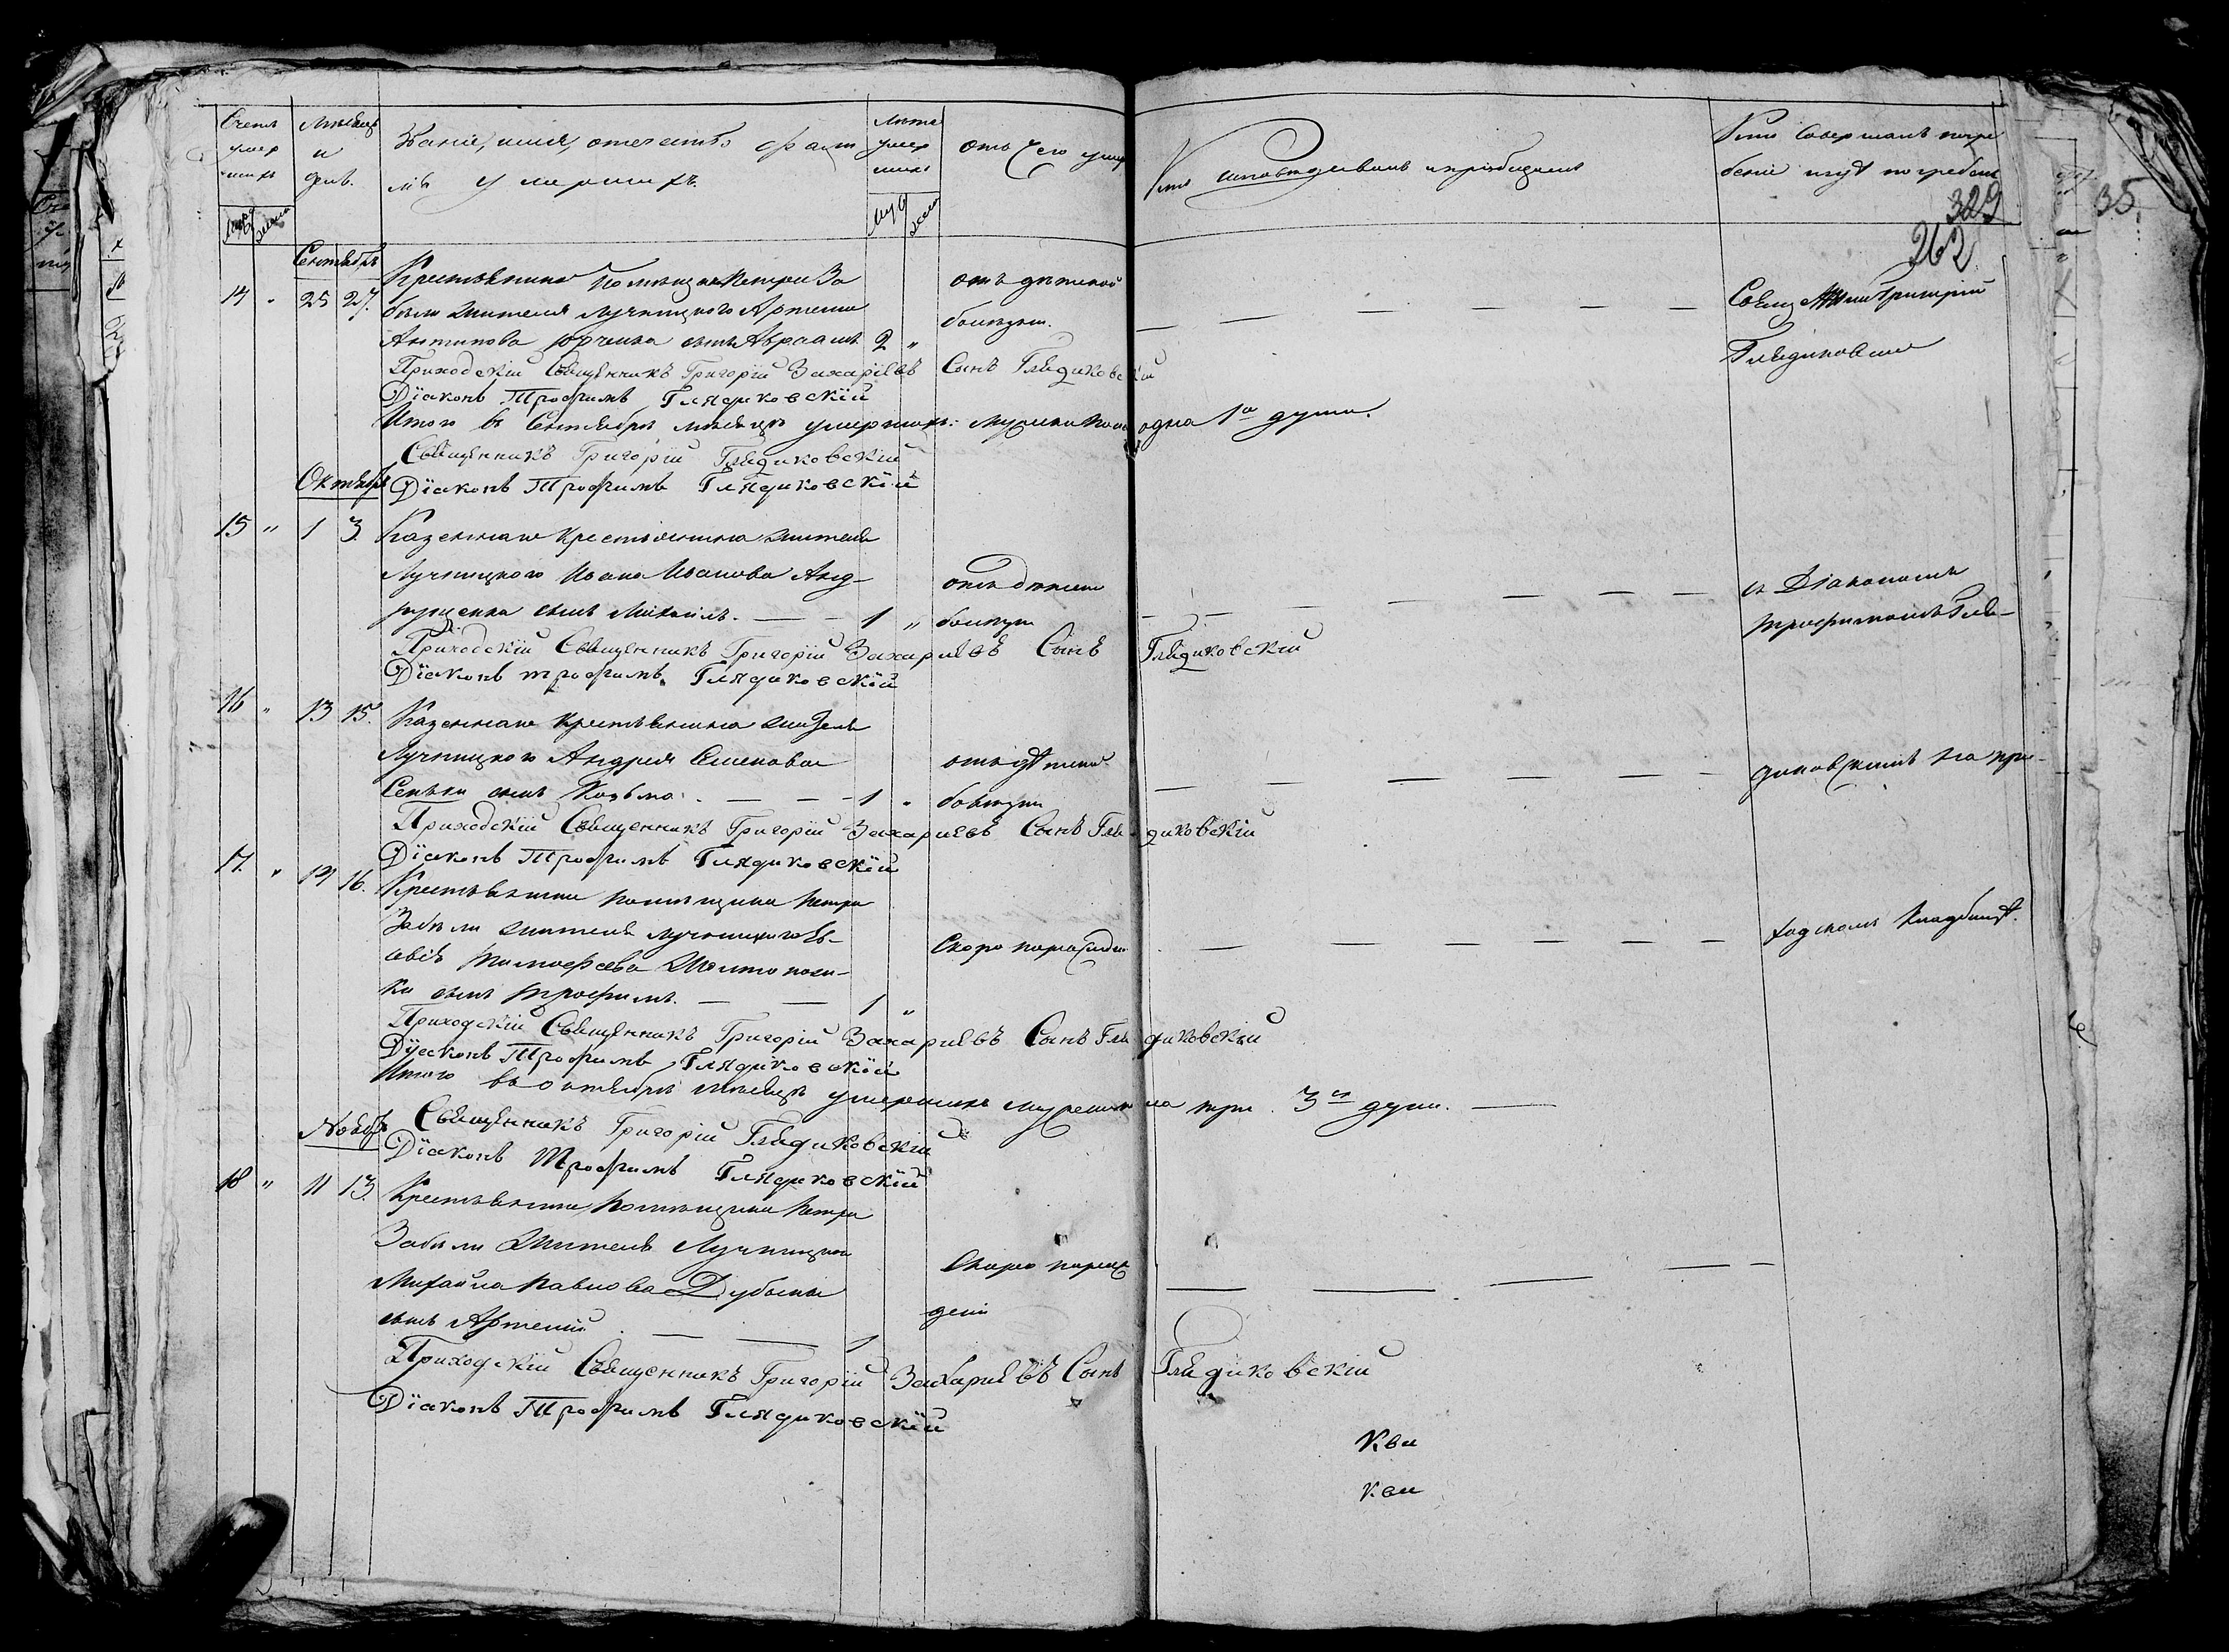 Счетъ умер шихъ
Мѣсяцъ и день.
Званіе, имя, отечество фами
лія умершихъ.
Лѣта умер шихъ
отъ чего умеръ
Кто исповѣдывалъ и пріобщалъ
Кто совершалъ погре
беніе и гдѣ погребенъ
Муж женс
Муж женс
329
262
35.
Сентябрь
14 " 25 27. Крестьянина помѣщика Петра За
были жителя Лучницкого Артема
Антипова Юрченка сынъ Авраамъ 2 "
отъ дѣтской
болезни.
Свящ Григорій
Глядиковскій
Приходскій Священникъ Григорій Захаріевъ Сынъ Глядиковскій
Діаконъ Трофимъ Глядиковскій
Итого въ Сентябрѣ мѣсяцѣ умершихъ: мужеска пола одна 1а душа.
Священникъ Григорій Глядиковскій
Октябрь
Діаконъ Трофимъ Глядиковскій
15 " 1 3. Казеннаго крестьянина жителя
Лучницкого Ивана Иванова Анд-
рущенка сынъ Михаилъ. 1 "
отъ дѣтской
болезни
съ Діакономъ
Трофимомъ Гля-
Приходскій Священникъ Григорій Захаріевъ Сынъ Глядиковскій
Діаконъ Трофимъ Глядиковскій
16 " 13 15. Казеннаго крестьянина жителя
Лучницкого Андрея Семенова
Сеньки сынъ Козьма. 1 "
отъ дѣтской
болезни
диковскимъ на при-
Приходскій Священникъ Григорій Захаріевъ Сынъ Глядиковскій
Діаконъ Трофимъ Глядиковскій
17. " 14 16. Крестьянина помѣщика Петра
Забили жителя Лучницкого Ев-
сѣвія Тимофеева
сынъ Трофимъ. 1 "
Скоро
ходскомъ кладбищѣ.
Приходскій Священникъ Григорій Захаріевъ Сынъ Глядиковскій
Діаконъ Трофимъ Глядиковскій
Итого въ октябрѣ мѣсяцѣ умершихъ мужеска пола три 3и души.
Священникъ Григорій Глядиковскій
Ноябрь
Діаконъ Трофимъ Глядиковскій
18 " 11 13. Крестьянина помѣщика Петра
Забили жителя Лучницкого
Михайла Павлова Дубины
сынъ Артемій 1
Скоро
Приходскій Священникъ Григорій Захаріевъ Сынъ Глядиковскій
Діаконъ Трофимъ Глядиковскій